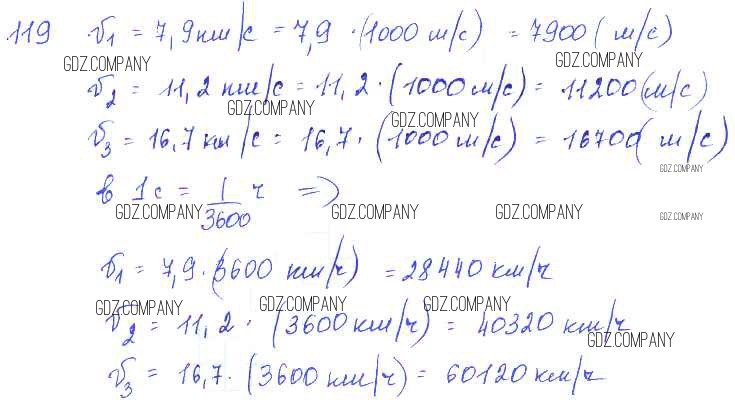 119 v₁ = 7,9 км/с = 7,9 · (1000 м/с) = 7900 (м/с)
GDZ.COMPANY GDZ.COMPANY
v₂ = 11,2 км/с = 11,2 · (1000 м/с) = 11200 (м/с)
GDZ.COMPANY GDZ.COMPANY
v₃ = 16,7 км/с = 16,7 · (1000 м/с) = 16700 (м/с)
GDZ.COMPANY
в 1с = 1/3600 ч =>
GDZ.COMPANY GDZ.COMPANY GDZ.COMPANY GDZ.COMPANY
v₁ = 7,9 · (3600 км/ч) = 28440 км/ч
GDZ.COMPANY GDZ.COMPANY GDZ.COMPANY
v₂ = 11,2 · (3600 км/ч) = 40320 км/ч
GDZ.COMPANY
v₃ = 16,7 · (3600 км/ч) = 60120 км/ч